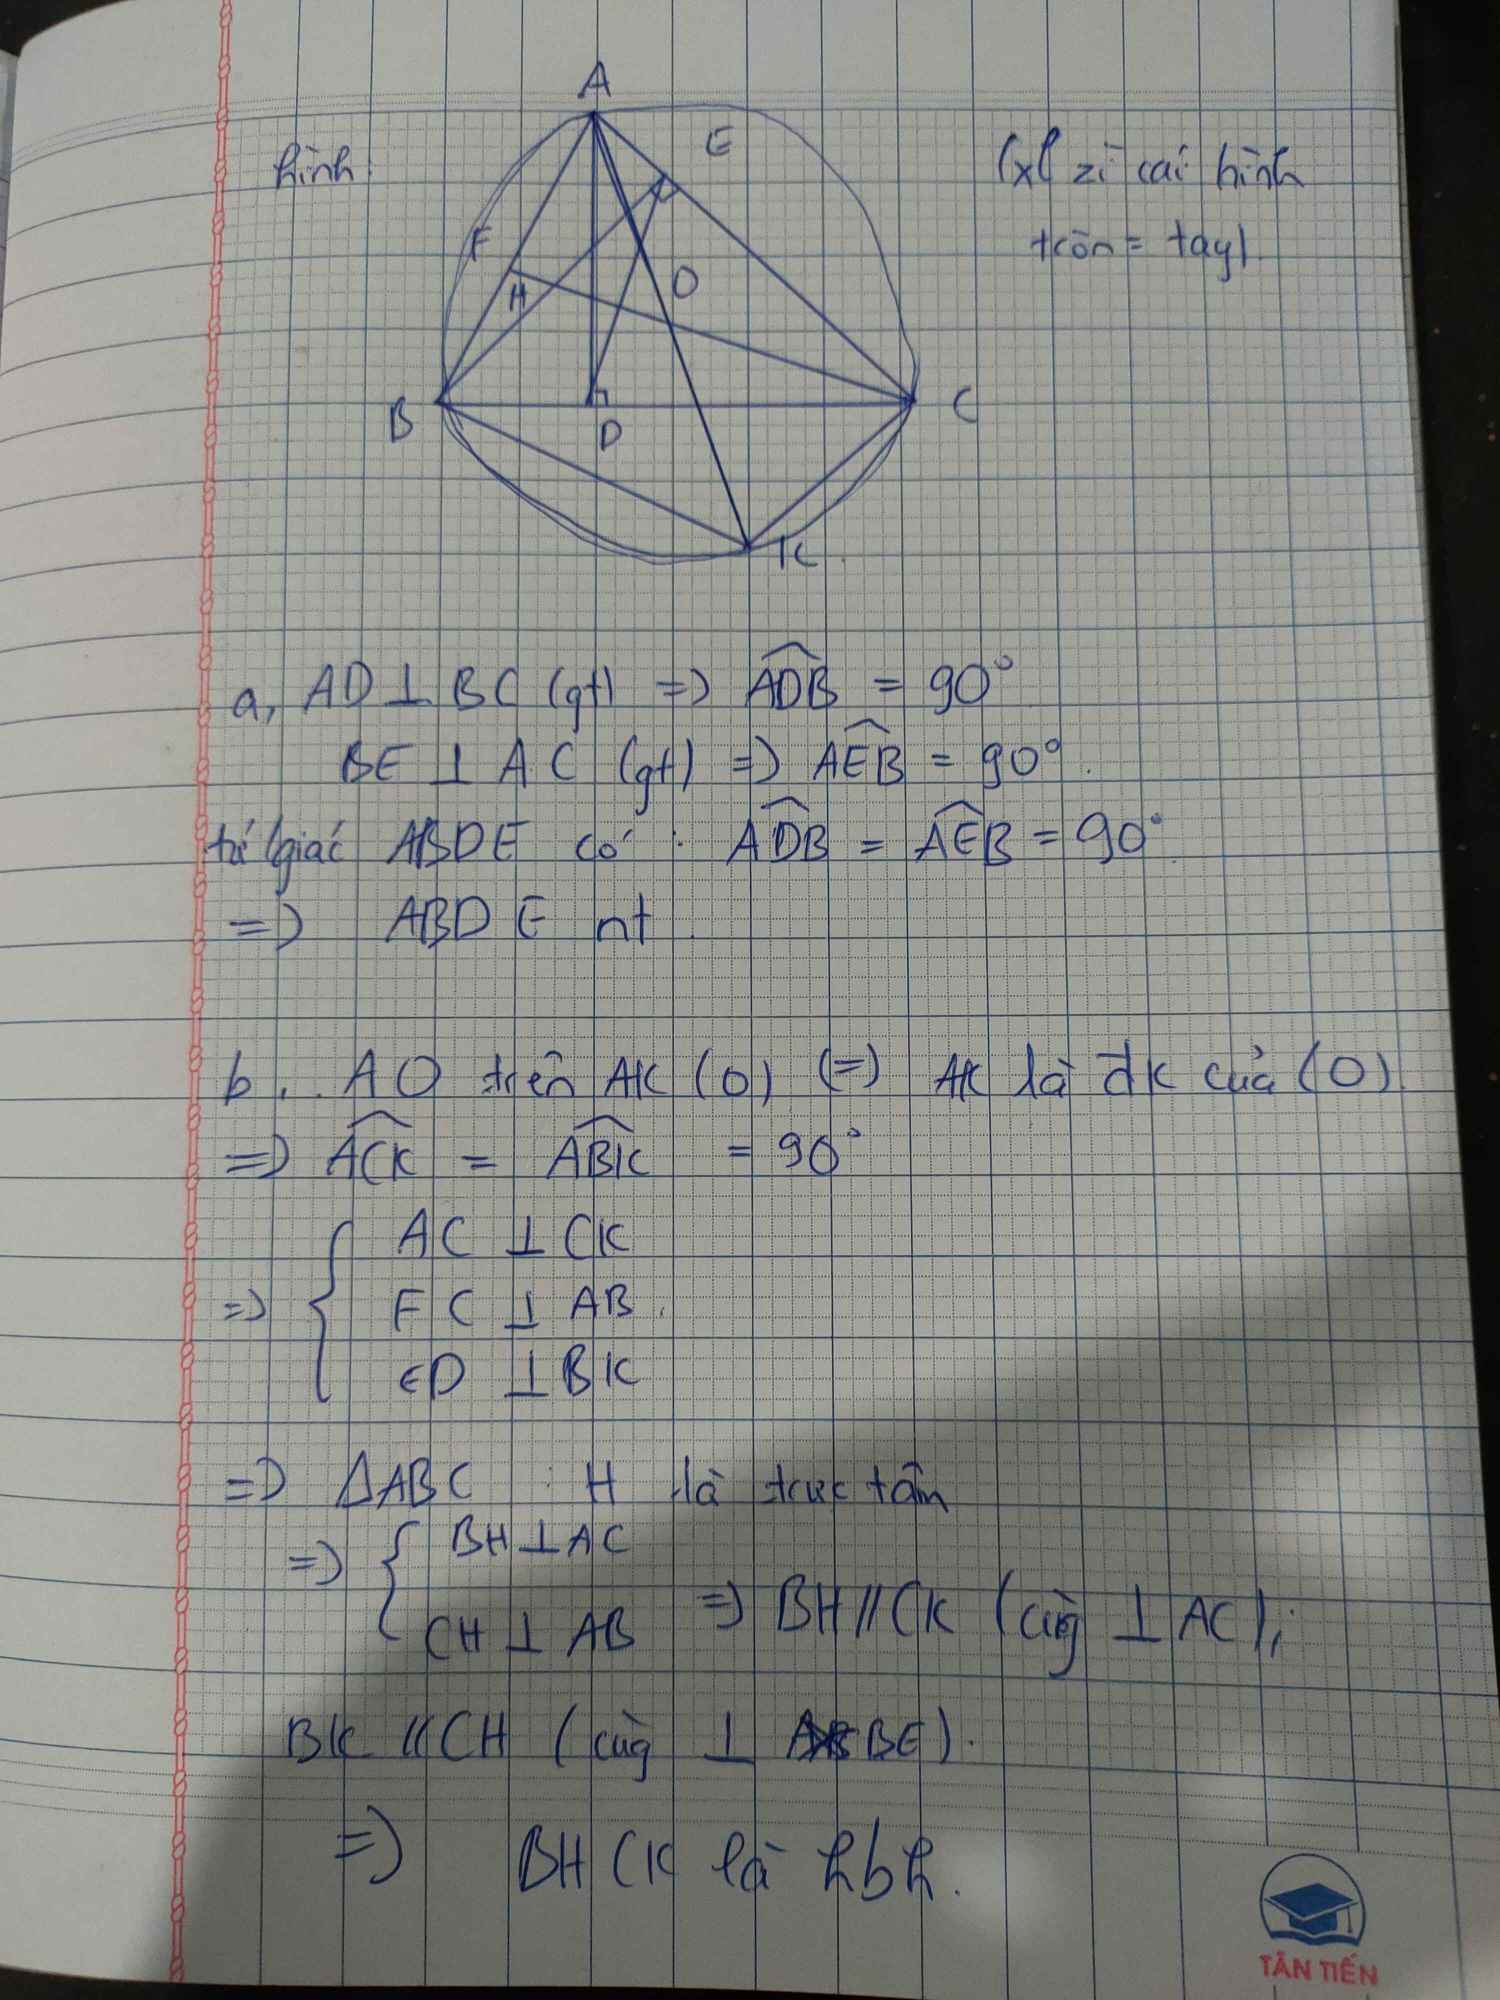 A
E
hình.
(xl zì cái hình
tròn = tay)
F
H
O
B
D
C
K
a, AD ⊥ BC (gt) => ADB = 90°
BE ⊥ AC (gt) => AEB = 90°.
tứ giác ABDE có : ADB = AEB = 90°.
=> ABDE nt.
b, AO trên AK (O) (=) AK là đk của (O)
=> ACK = ABK = 90°
=> { AC ⊥ CK
FC ⊥ AB.
ED ⊥ BK
=> ΔABC : H là trực tâm
=> { BH ⊥ AC
CH ⊥ AB => BH // CK (cùg ⊥ AC),
BK // CH (cùg ⊥ BE).
=> BHCK là hbh.
TÂN TIẾN